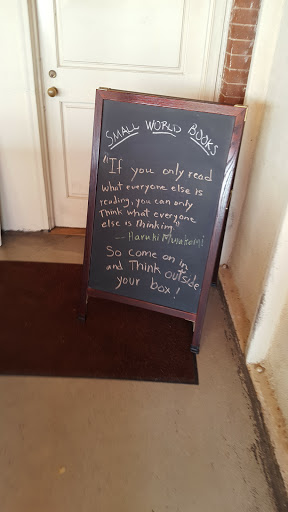 SMALL WORLD BOOKS
"If you only read
what everyone else is
reading, you can only
Think what everyone
else is thinking"
-- Haruki Murakami
So come on in
and Think outside
your box!